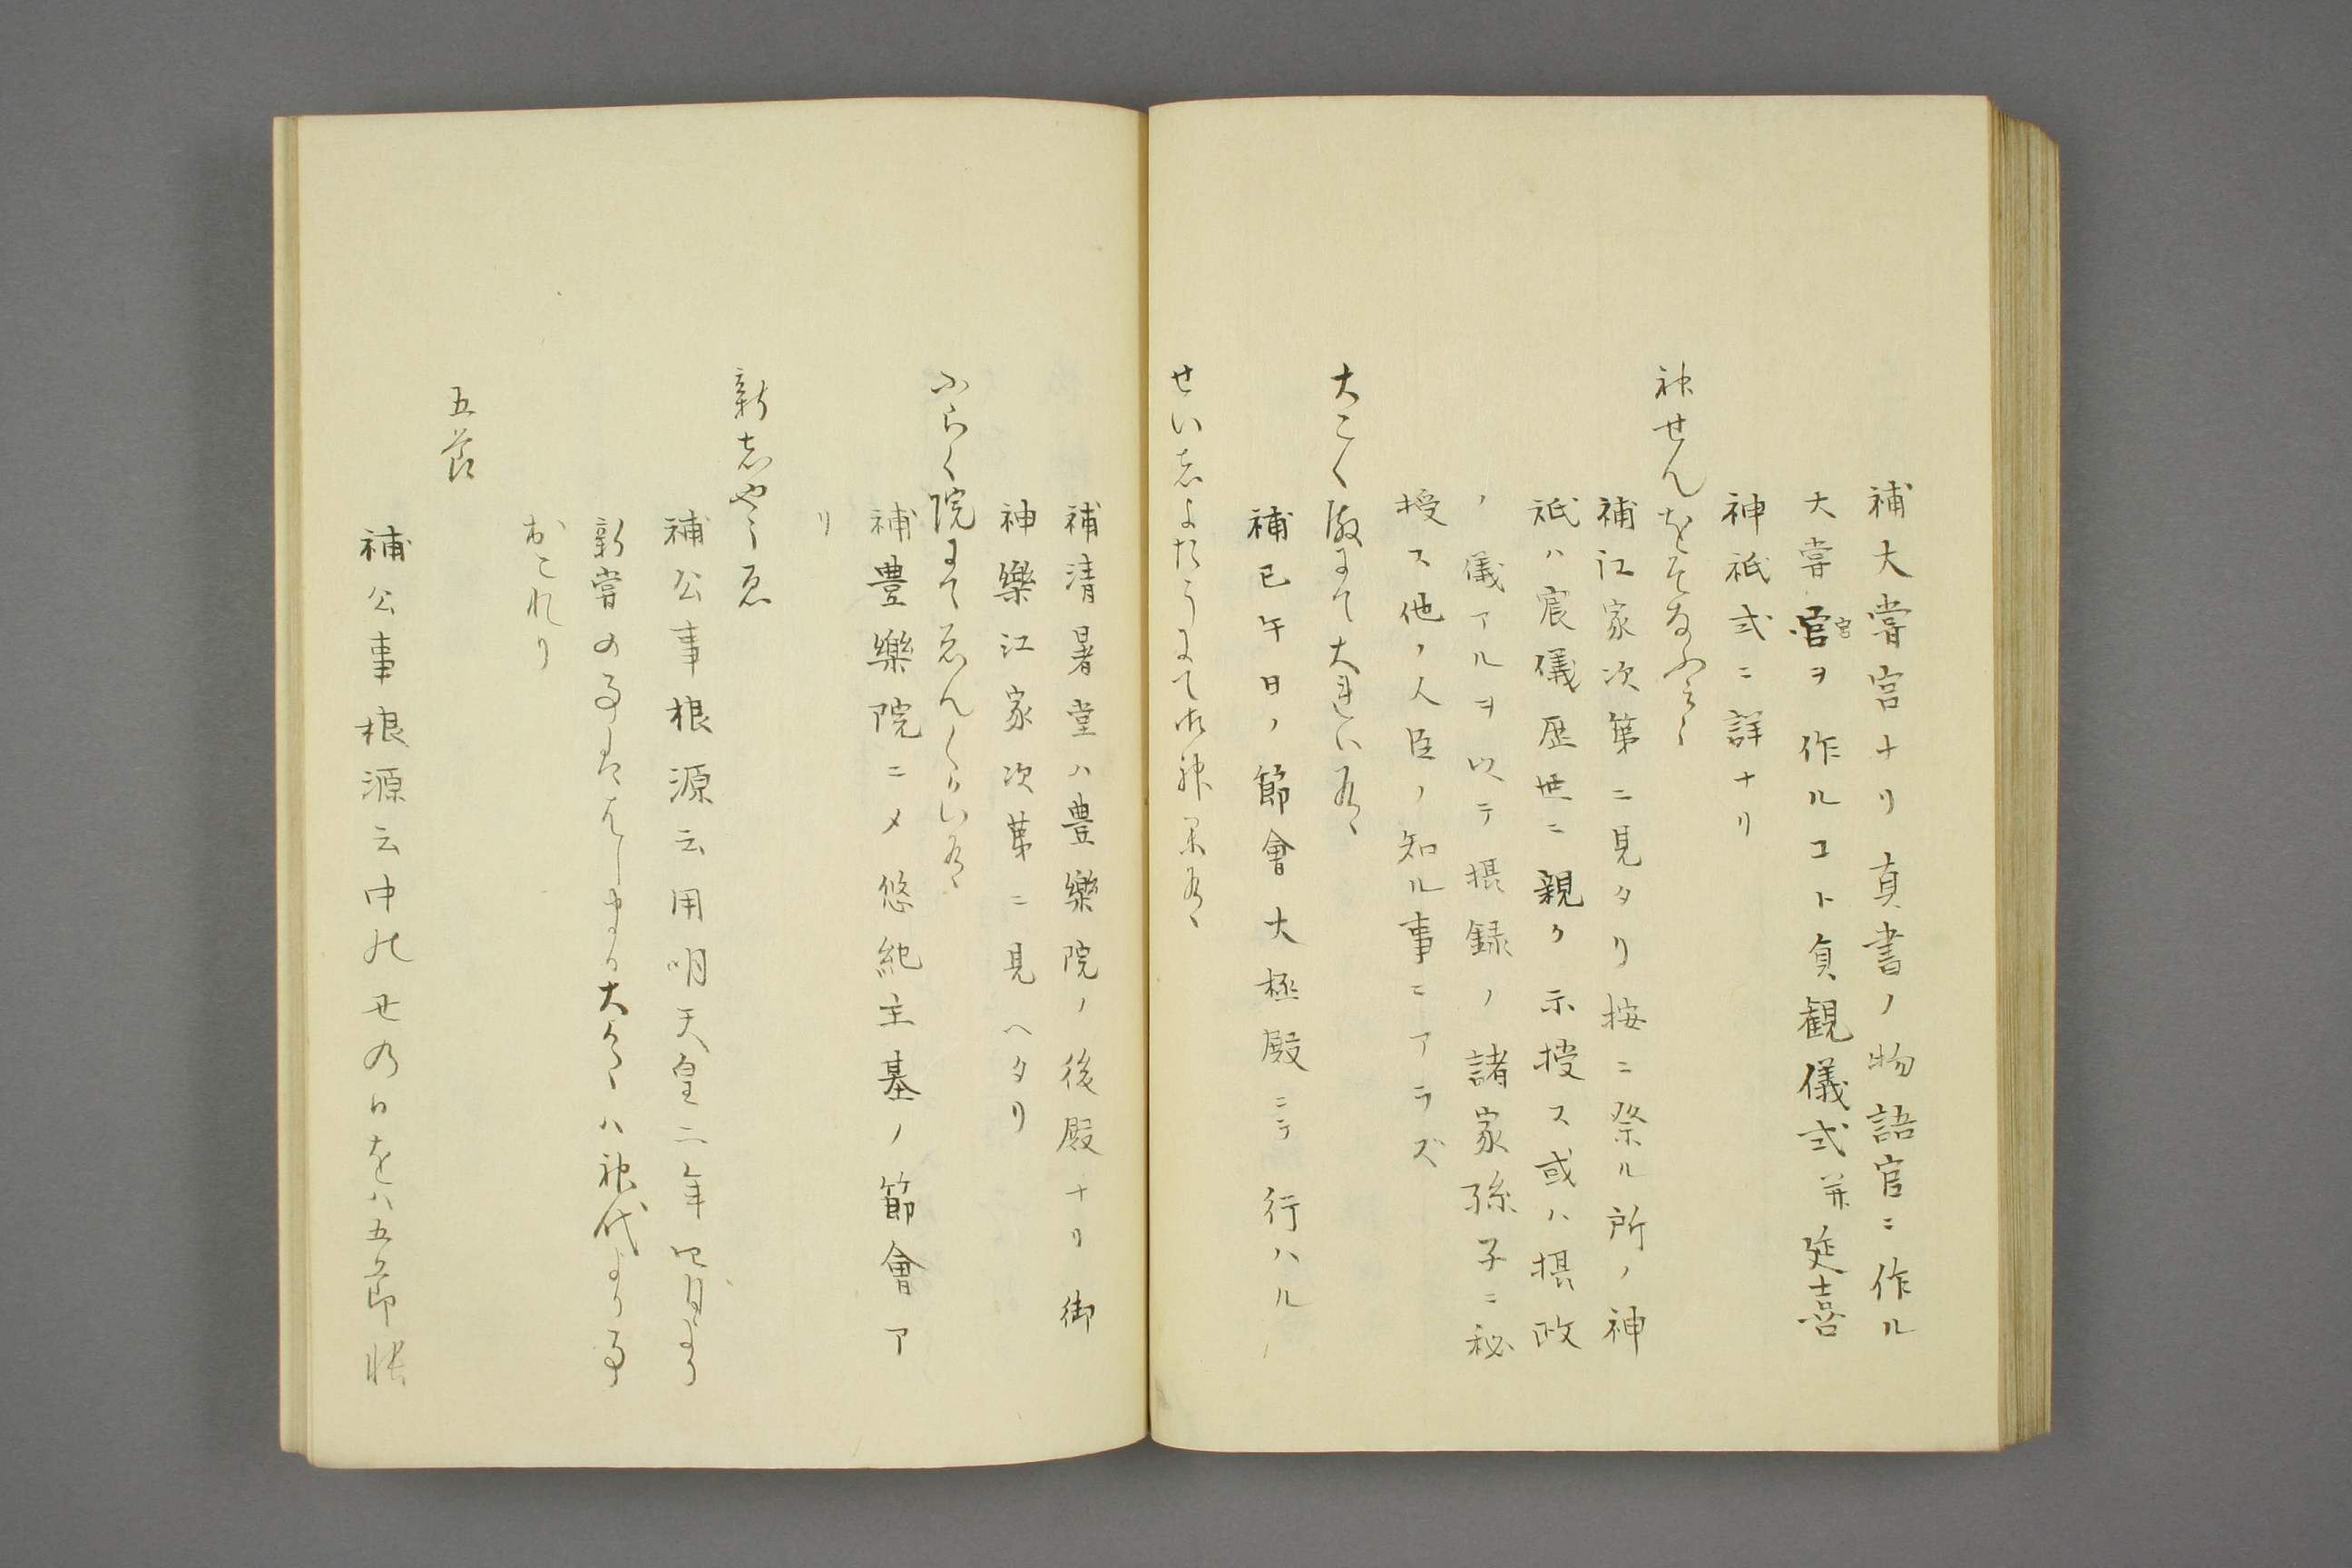 補大嘗宮ナリ真書ノ物語官ニ作ル
大嘗官宮ヲ作ルコト貞観儀式并延喜
神祇式ニ詳ナリ
神せんをそなふる
補江家次第ニ見タリ按ニ祭ル所ノ神
祇ハ宸儀歴世ニ親ク示授ス或ハ摂政
ノ儀アルヲ以テ摂録ノ諸家孫子ニ秘
授ス他ノ人臣ノ知ル事ニアラズ
大こく殿にて大禮行
補巳午日ノ節會大極殿ニテ行ハル
せい志よたうにて御神楽
補清暑堂ハ豊樂院ノ後殿ナリ御
神樂江家次第ニ見ヘタリ
ふらく院にてゑんくわい
補豊樂院ニメ悠紀主基ノ節會ア
リ
新志やうゑ
補公事根源云用明天皇二年四月より
新嘗の事はしまる大かくハ神代より事
おこれり
五節
補公事根源云中の丑の日をハ五節帳